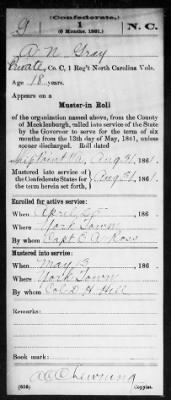 (Confederate.)
9 N. C.
(6 Months, 1861.)
R. N. Gray
Private, Co. C, 1 Reg't North Carolina Vols.
Age 18 years.
Appears on a
Muster-in Roll
of the organization named above, from the County
of Mecklenburgh, called into service of the State
by the Governor to serve for the term of six
months from the 13th day of May, 1861, unless
sooner discharged. Roll dated
Aug 31, 1861.
Mustered into service of
the Confederate States for
the term herein set forth,
Aug 31, 1861.
Enrolled for active service:
When April 25, 186
Where York Town
By whom Capt E. A. Ross
Mustered into service:
When May 13, 186
Where York Town
By whom Col D. H. Hill
Remarks:
Book mark:
Chewning
Copyist.